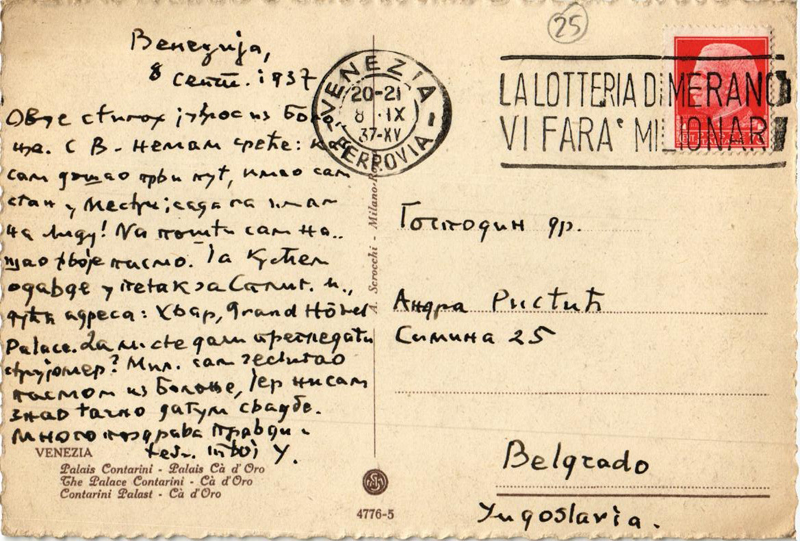 25
Венеција,
8 септ. 1937
VENEZIA
20-21
8 IX
37-XV
FERROVIA
LA LOTTERIA DI MERANO
VI FARA' MILIONARI
Овде стигох јутрос из Боло-
ње. С В- немам среће: кад
сам дошао први пут, имао сам
стан у Местри; сада га имам
на Лиду! Na пошти сам на-
шао твоје писмо. Ја крећем
одавде у петак за Сплит и,
адреса: Хвар, Grand Hôtel
Palace. Да ли сте дали прегледати
струјомер? Мил. сам честитао
писмом из Болоње, јер нисам
знао тачно датум свадбе.
Много поздрава Правди и
теби. твој
Господин др.
Андра Ристић
Симина 25
Belgrado
Yugoslavia.
VENEZIA
Palais Contarini - Palais Cà d'Oro
The Palace Contarini - Cà d'Oro
Contarini Palast - Cà d'Oro
A. Scrocchi - Milano-
4776-5